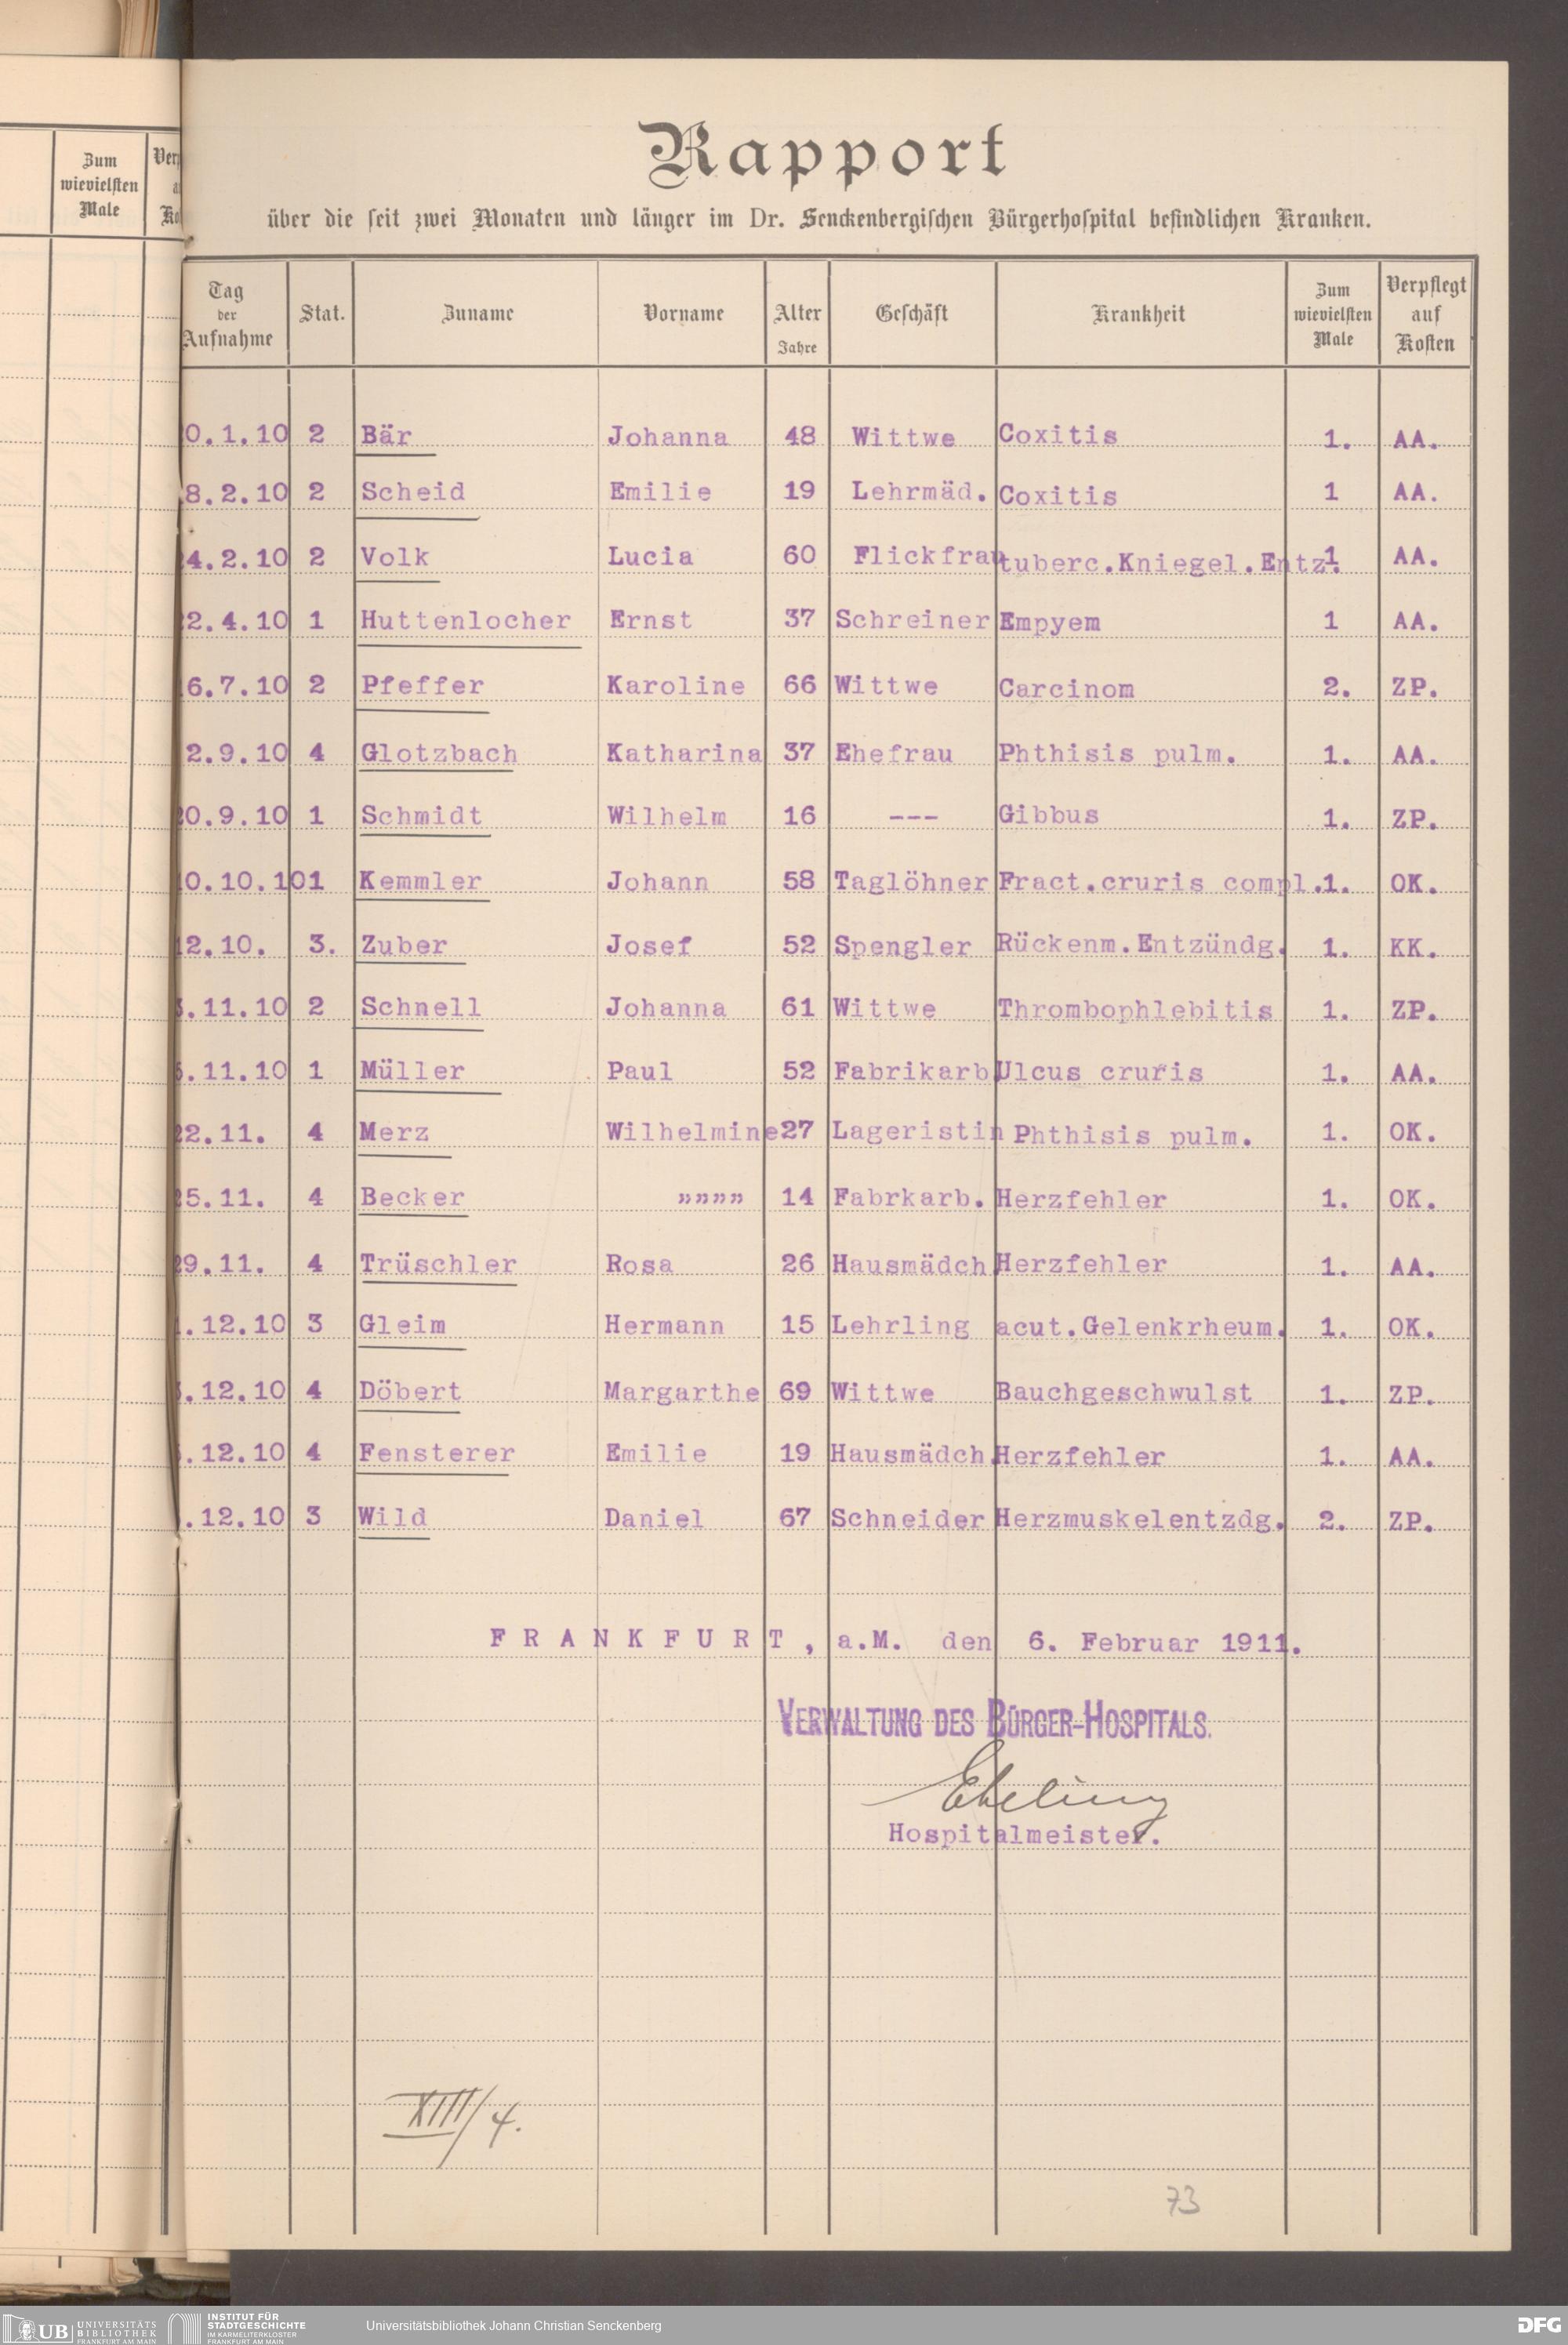 Zum Ver
wievielsten a
Male Ko
Rapport
über die seit zwei Monaten und länger im Dr. Senckenbergischen Bürgerhospital befindlichen Kranken.
Tag der Aufnahme Stat. Zuname Vorname Alter Jahre Geschäft Krankheit Zum wievielsten Male Verpflegt auf Kosten
0.1.10 2 Bär Johanna 48 Wittwe Coxitis 1. AA.
8.2.10 2 Scheid Emilie 19 Lehrmäd. Coxitis 1 AA.
24.2.10 2 Volk Lucia 60 Flickfrau tuberc.Kniegel.Entz. 1 AA.
22.4.10 1 Huttenlocher Ernst 37 Schreiner Empyem 1 AA.
6.7.10 2 Pfeffer Karoline 66 Wittwe Carcinom 2. ZP.
2.9.10 4 Glotzbach Katharina 37 Ehefrau Phthisis pulm. 1. AA.
20.9.10 1 Schmidt Wilhelm 16 --- Gibbus 1. ZP.
0.10.10 1 Kemmler Johann 58 Taglöhner Fract.cruris compl. 1. OK.
12.10. 3. Zuber Josef 52 Spengler Rückenm.Entzündg. 1. KK.
3.11.10 2 Schnell Johanna 61 Wittwe Thrombophlebitis 1. ZP.
5.11.10 1 Müller Paul 52 Fabrikarb. Ulcus cruris 1. AA.
22.11. 4 Merz Wilhelmine 27 Lageristin Phthisis pulm. 1. OK.
25.11. 4 Becker """" 14 Fabrkarb. Herzfehler 1. OK.
29.11. 4 Trüschler Rosa 26 Hausmädch. Herzfehler 1. AA.
1.12.10 3 Gleim Hermann 15 Lehrling acut.Gelenkrheum. 1. OK.
.12.10 4 Döbert Margarthe 69 Wittwe Bauchgeschwulst 1. ZP.
.12.10 4 Fensterer Emilie 19 Hausmädch. Herzfehler 1. AA.
.12.10 3 Wild Daniel 67 Schneider Herzmuskelentzdg. 2. ZP.
FRANKFURT, a.M. den 6. Februar 1911.
VERWALTUNG DES BÜRGER-HOSPITALS.
Ebeling
Hospitalmeister.
XIII/4.
73
UB UNIVERSITÄTS BIBLIOTHEK FRANKFURT AM MAIN
INSTITUT FÜR STADTGESCHICHTE IM KARMELITERKLOSTER FRANKFURT AM MAIN
Universitätsbibliothek Johann Christian Senckenberg
DFG